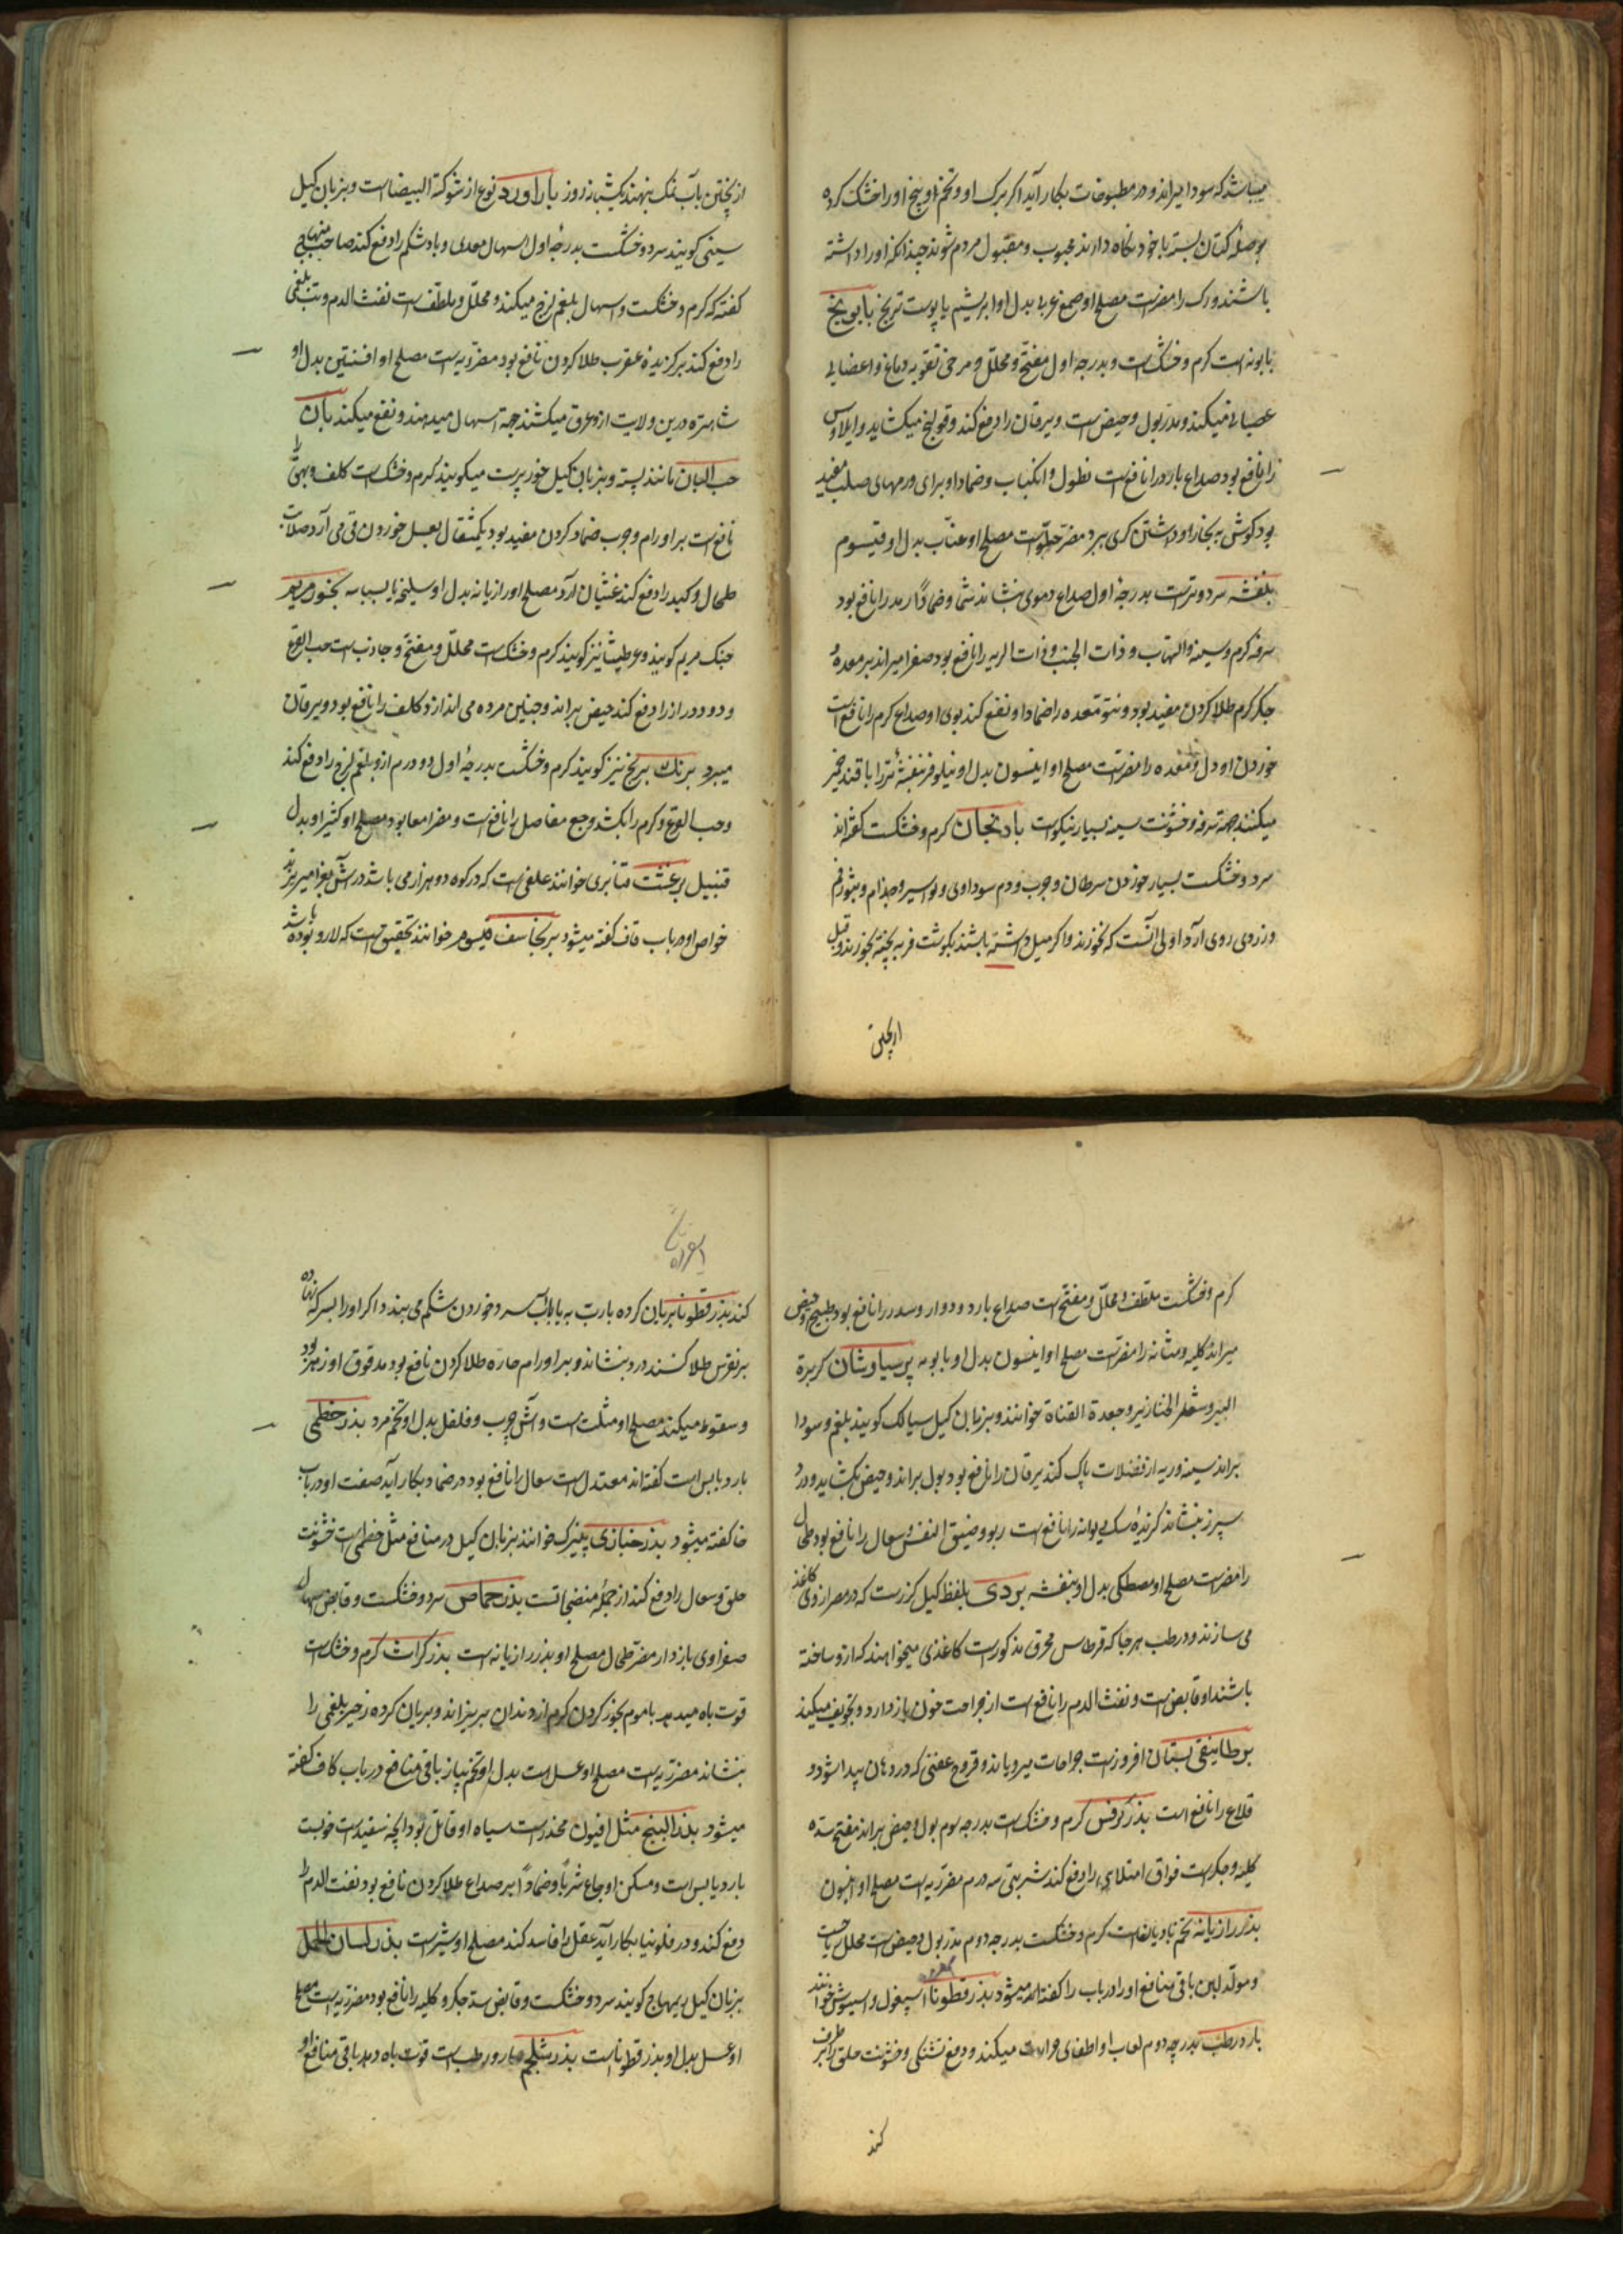 میباشد که سودا میراند و در مطبوخات بکار آید اکر برک او و تخم او و بیخ او را خشک کرده
کتان بسته با خود نکاه دارند محبوب و مقبول مردم شوند چندانکه او را داشته
باشند ورک را مضرست مصلح او صمغ عربی بدل او ابریشم یا پوست ترنج بابونج
بابونه است کرم و خشکست و بدرجه اول مفتح و محلل و مرخی تقویه دماغ و اعضای
عصبانی میکند و مدر بول و حیض است و یرقان را دفع کند و قولنج میکشاید و ایلاوس
را نافع بود صداع بارد را نافعست نطول و انکباب و ضماد او برای ورمهای صلب مفید
بود کوش به بخار او داشتن کری ببرد مضر حلقست مصلح او عناب بدل او قیسوم
بنفشه سرد و ترست بدرجه اول صداع دموی بنشاند شما و ضمادا رمد را نافع بود
سرفه کرم و سینه و التهاب و ذات الجنب و ذات الریه را نافع بود صفرا میراند بر معده و
جکر کرم طلا کردن مفید بود و نتو مقعده را ضماد او نفع کند بوی او صداع کرم را نافع است
خوردن او دل و معده را مضرست مصلح او انیسون بدل او نیلوفر بنفشه تر را با قند خمیر
میکنند جهة سرفه و خشونت سینه بسیار نیکوست بادنجان کرم و خشکست کفته‌اند
سرد و خشکست بسیار خوردن سرطان و جرب و دم سوداوی و بواسیر و جذام و بثور فم
و زردی روی آرد اولی آنست که نخورند و اکر میل داشته باشند بکوشت فربه پخته بخورند و قبل
از پختن
از پختن بآب نمک بنهند یکشبانه روز باداورد نوع از شوکة البیضاست و بزبان کیل
سینی کویند سرد و خشکست بدرجه اول اسهال معدی و بادشکم را دفع کند صاحب منهاج
کفته که کرم و خشکست و اسهال بلغم لزج میکند و محلل و ملطفست نفث الدم و تب بلغمی
را دفع کند بر کزیده عقرب طلا کردن نافع بود مضر ریه است مصلح او افسنتین بدل او
شاهتره درین ولایت ازو عرق میکشند جهة اسهال میدهند و نفع میکند بان
حب البان مانند پسته و بزبان کیل خورپرست میکویند کرم و خشکست کلف و بهق را
نافعست بر اورام و جرب ضماد کردن مفید بود یکمثقال بعسل خوردن قی می آرد صلابت
طحال و کبد را دفع کند غثیان آرد مصلح او رازیانه بدل او سلیخه یا بسباسه بخور مریم
چنک مریم کویند و عرطنیثا نیز کویند کرم و خشکست محلل و مفتح و جاذبست حب القرع
و دود دراز را دفع کند حیض براند و جنین مرده می اندازد کلف را نافع بود و یرقان
میبرد برنک برنج نیز کویند کرم و خشکست بدرجه اول دو درم ازو بلغم لزج را دفع کند
و حب القرع و کرم را بکشد وجع مفاصل را نافعست و مضر امعا بود مصلح او کثیرا و بدل
قنبیل برغشت قنابری خوانند علفی است که در کوه دو هزار می باشد در آش بغرا میریزند
خواص او در باب قاف کفته میشود برنجاسف قیسوم خوانند تحقیق است که لارو بوده باشد
کرم و خشکست ملطف و محلل و مفتح است صداع بارد و دوار و سدر را نافع بود طبیخ او حیض
میراند کلیه و مثانه را مضرست مصلح او انیسون بدل او بابونه پرسیاوشان کزبرة
البیر و شعر الخنازیر و جعدة القناة خوانند و بزبان کیل سیالک کویند بلغم و سودا
براند سینه و ریه از فضلات پاک کند یرقان را نافع بود بول براند و حیض بکشاید و درد
سپرز بنشاند کزیده سک دیوانه را نافع است ربو و ضیق النفس و سعال را نافع بود طحال
را مضرست مصلح او مصطکی بدل او بنفشه بردی بلفظ کیل کزرست که در مصر از وی کاغذ
می سازند و در طب هر جا که قرطاس محرق مذکورست کاغذی میخواهند که ازو ساخته
باشند او قابض است و نفث الدم را نافع است از جراحت خون باز دارد و تجویف میکند
برطانیقی بستان افروزست جراحات میرویاند و قروح عفنی که در دهان پیدا شود و
قلاع را نافع است بذر کرفس کرم و خشکست بدرجه سوم بول و حیض براند مفتح سده
کلیه و جکرست فواق امتلایی را دفع کند شربتی سه درم مضر ریه است مصلح او انیسون
بذر رازیانه تخم بادیانست کرم و خشکست بدرجه دوم مدر بول و حیض است محلل ریاحست
و مولد لبن باقی منافع او را در باب را کفته میشود بذر قطونا اسپغول و اسبیوش خوانند
بارد رطب بدرجه دوم لعاب او اطفای حرارت میکند و دفع تشنکی و خشونت حلق را برطرف
کند
کند بذر قطونا بریان کرده با رب به یا باآب سرد خوردن شکم می بندد اکر او را بسرکه زده
بر نقرس طلا کنند درد بنشاند و بر اورام حاره طلا کردن نافع بود مدقوق او زهر بود
و سقوط میکند مصلح او مثلث است و آش چرب و فلفل بدل او تخم مرو بذر خطمی
بارد یابس است کفته اند معتدل است سعال را نافع بود در ضماد بکار آید صفت او در باب
خا کفته میشود بذر خبازی پنیرک خوانند بزبان کیل در منافع مثل خطمی است خشونت
حلق و سعال را دفع کند از جمله منضجاتست بذر حماض سرد و خشکست و قابض اسهال
صفراوی باز دارد مضر طحال مصلح او بذر رازیانه است بذر کراث کرم و خشکست
قوت باه میدهد با موم بخور کردن کرم از دندان بریزاند و بریان کرده زحیر بلغمی را
بنشاند مضر ریه است مصلح او عسل است بدل او تخم پیاز باقی منافع در باب کاف کفته
میشود بذر البنج مثل افیون مخدرست سیاه او قاتل بود آنچه سفیدست خوبست
بارد یابس است و مسکن اوجاع شربا و ضمادا بر صداع طلا کردن نافع بود نفث الدم را
دفع کند و در فلونیا بکار آید عقل را فاسد کند مصلح او شیرست بذر لسان الحمل
بزبان کیل بهاج کویند سرد و خشکست و قابض سده جکر و کلیه را نافع بود مضر ریه است مصلح
او عسل بدل او بذر قطوناست بذر شلجم حار و رطب است قوت باه دهد باقی منافع او